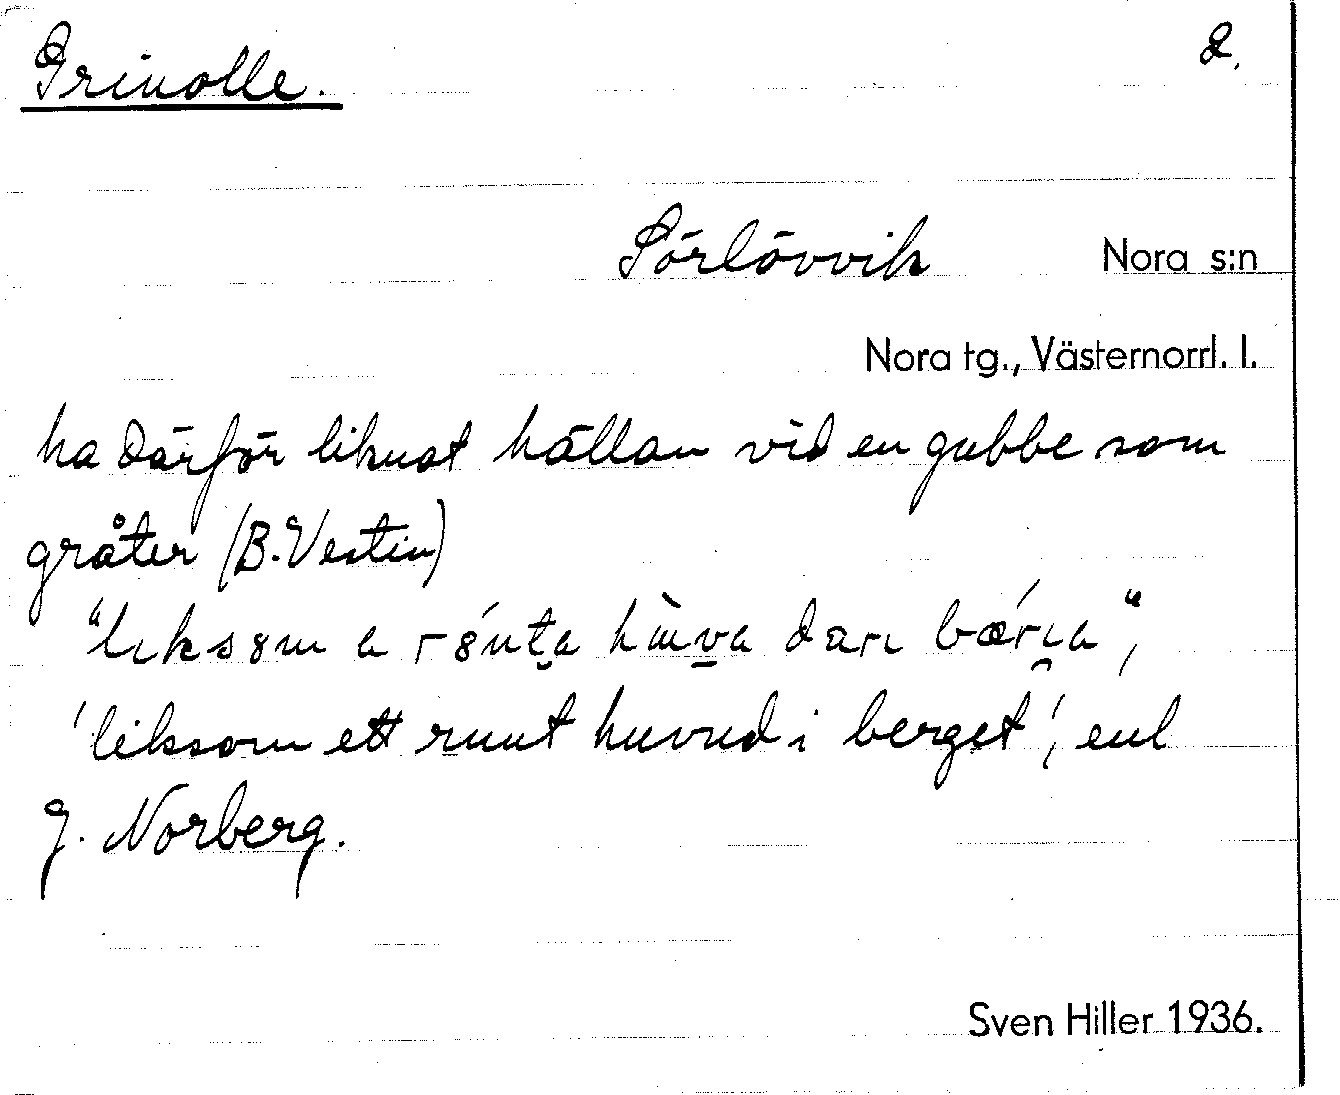 Grinolle. 2.
Sörlövvik Nora s:n
Nora tg., Västernorrl. l.
ha därför liknat hällan vid en gubbe som
gråter (B. Vestin)
"liksom a
'liksom ett runt huvud i berget', enl
J. Norberg.
Sven Hiller 1936.